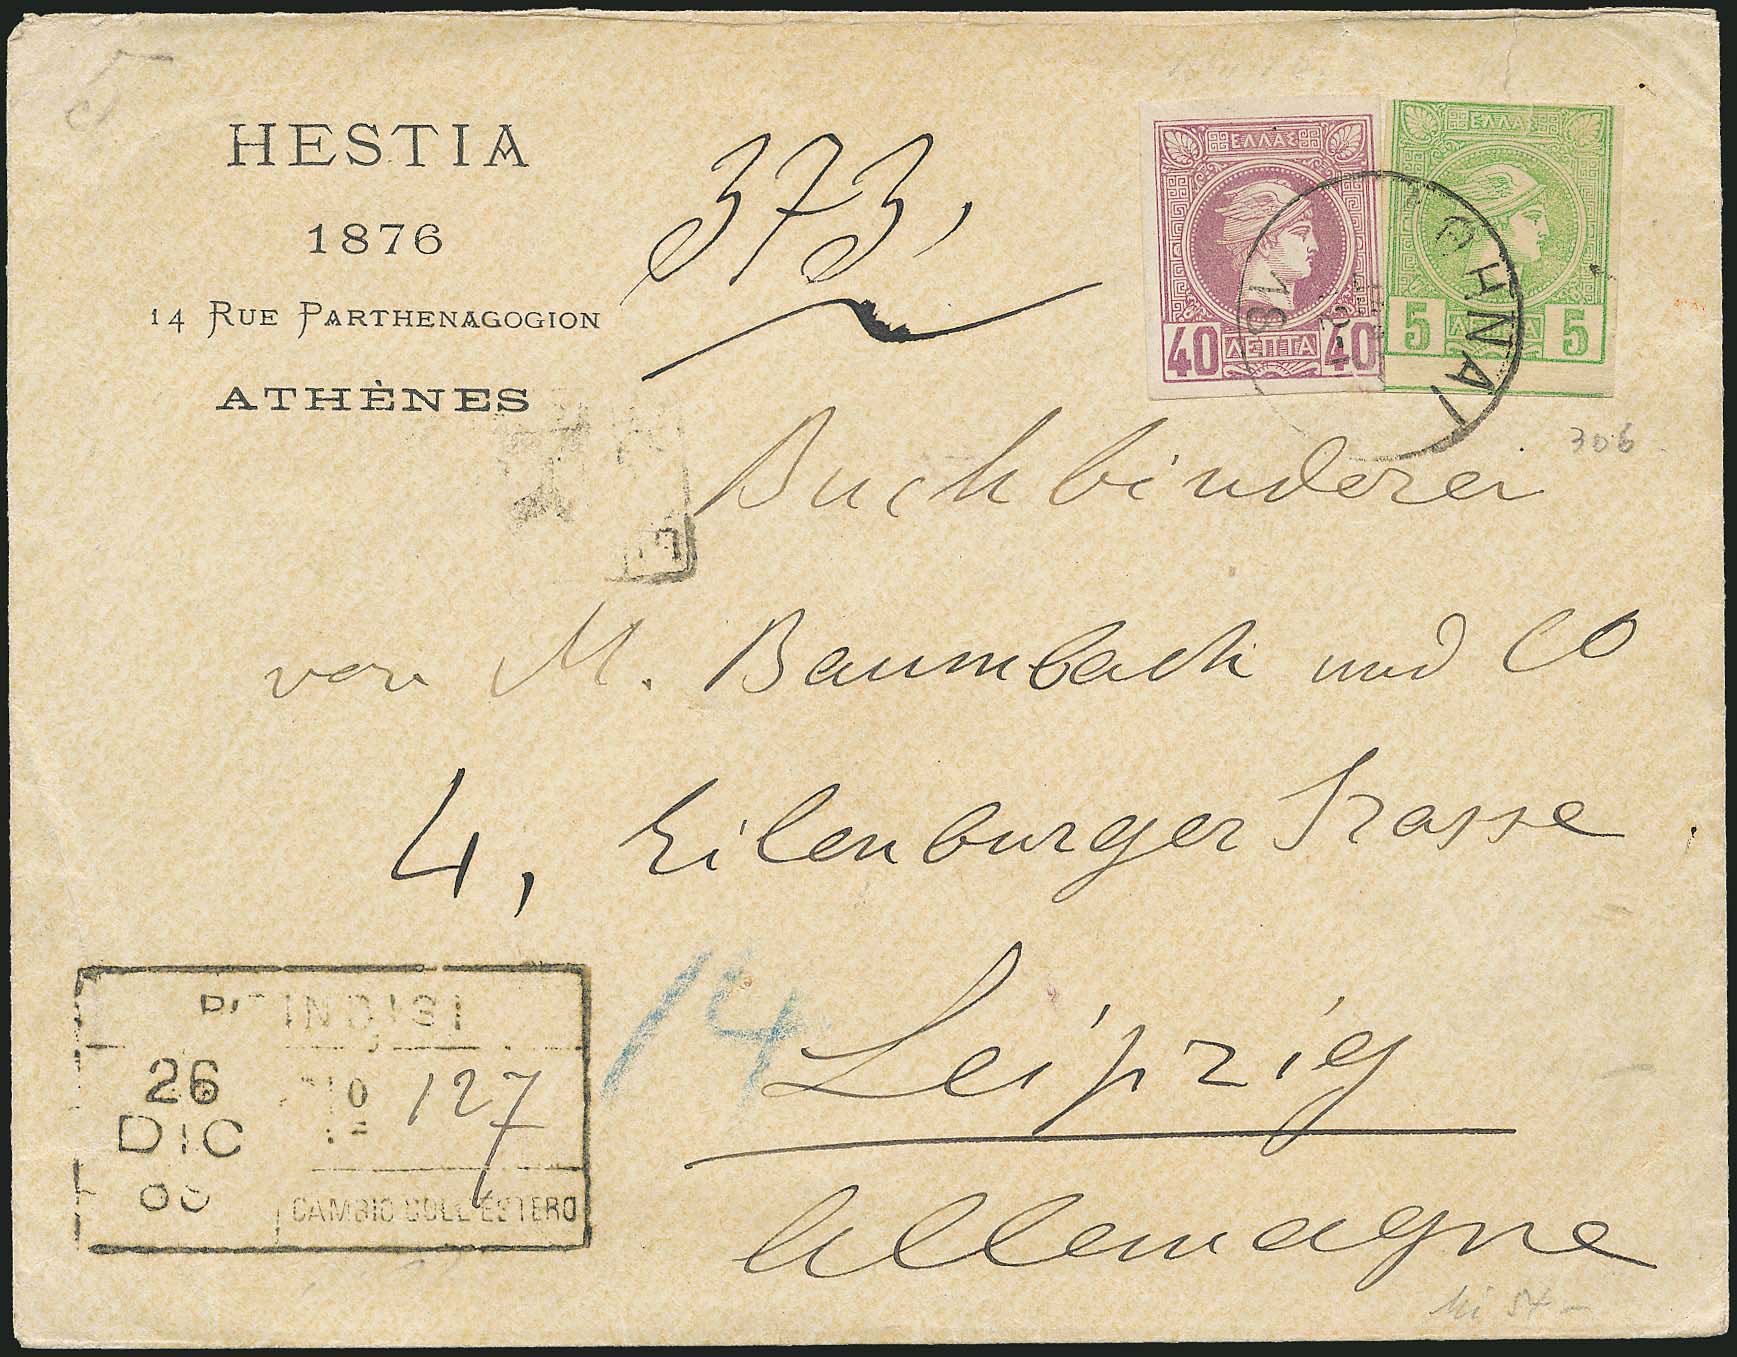 HESTIA
1876
14 RUE PARTHENAGOGION
ATHÈNES
373,
ΕΛΛΑΣ
40 ΛΕΠΤΑ 40
ΕΛΛΑΣ
5 ΛΕΠΤΑ 5
ΑΘΗΝΑΙ
306
Buchbinderei
von M. Baumbach und Co
4, Eilenburger Strasse
Leipzig
Allemagne
14
BRINDISI
26 DIC
No 127
CAMBIO COLL'ESTERO
Mi 54-